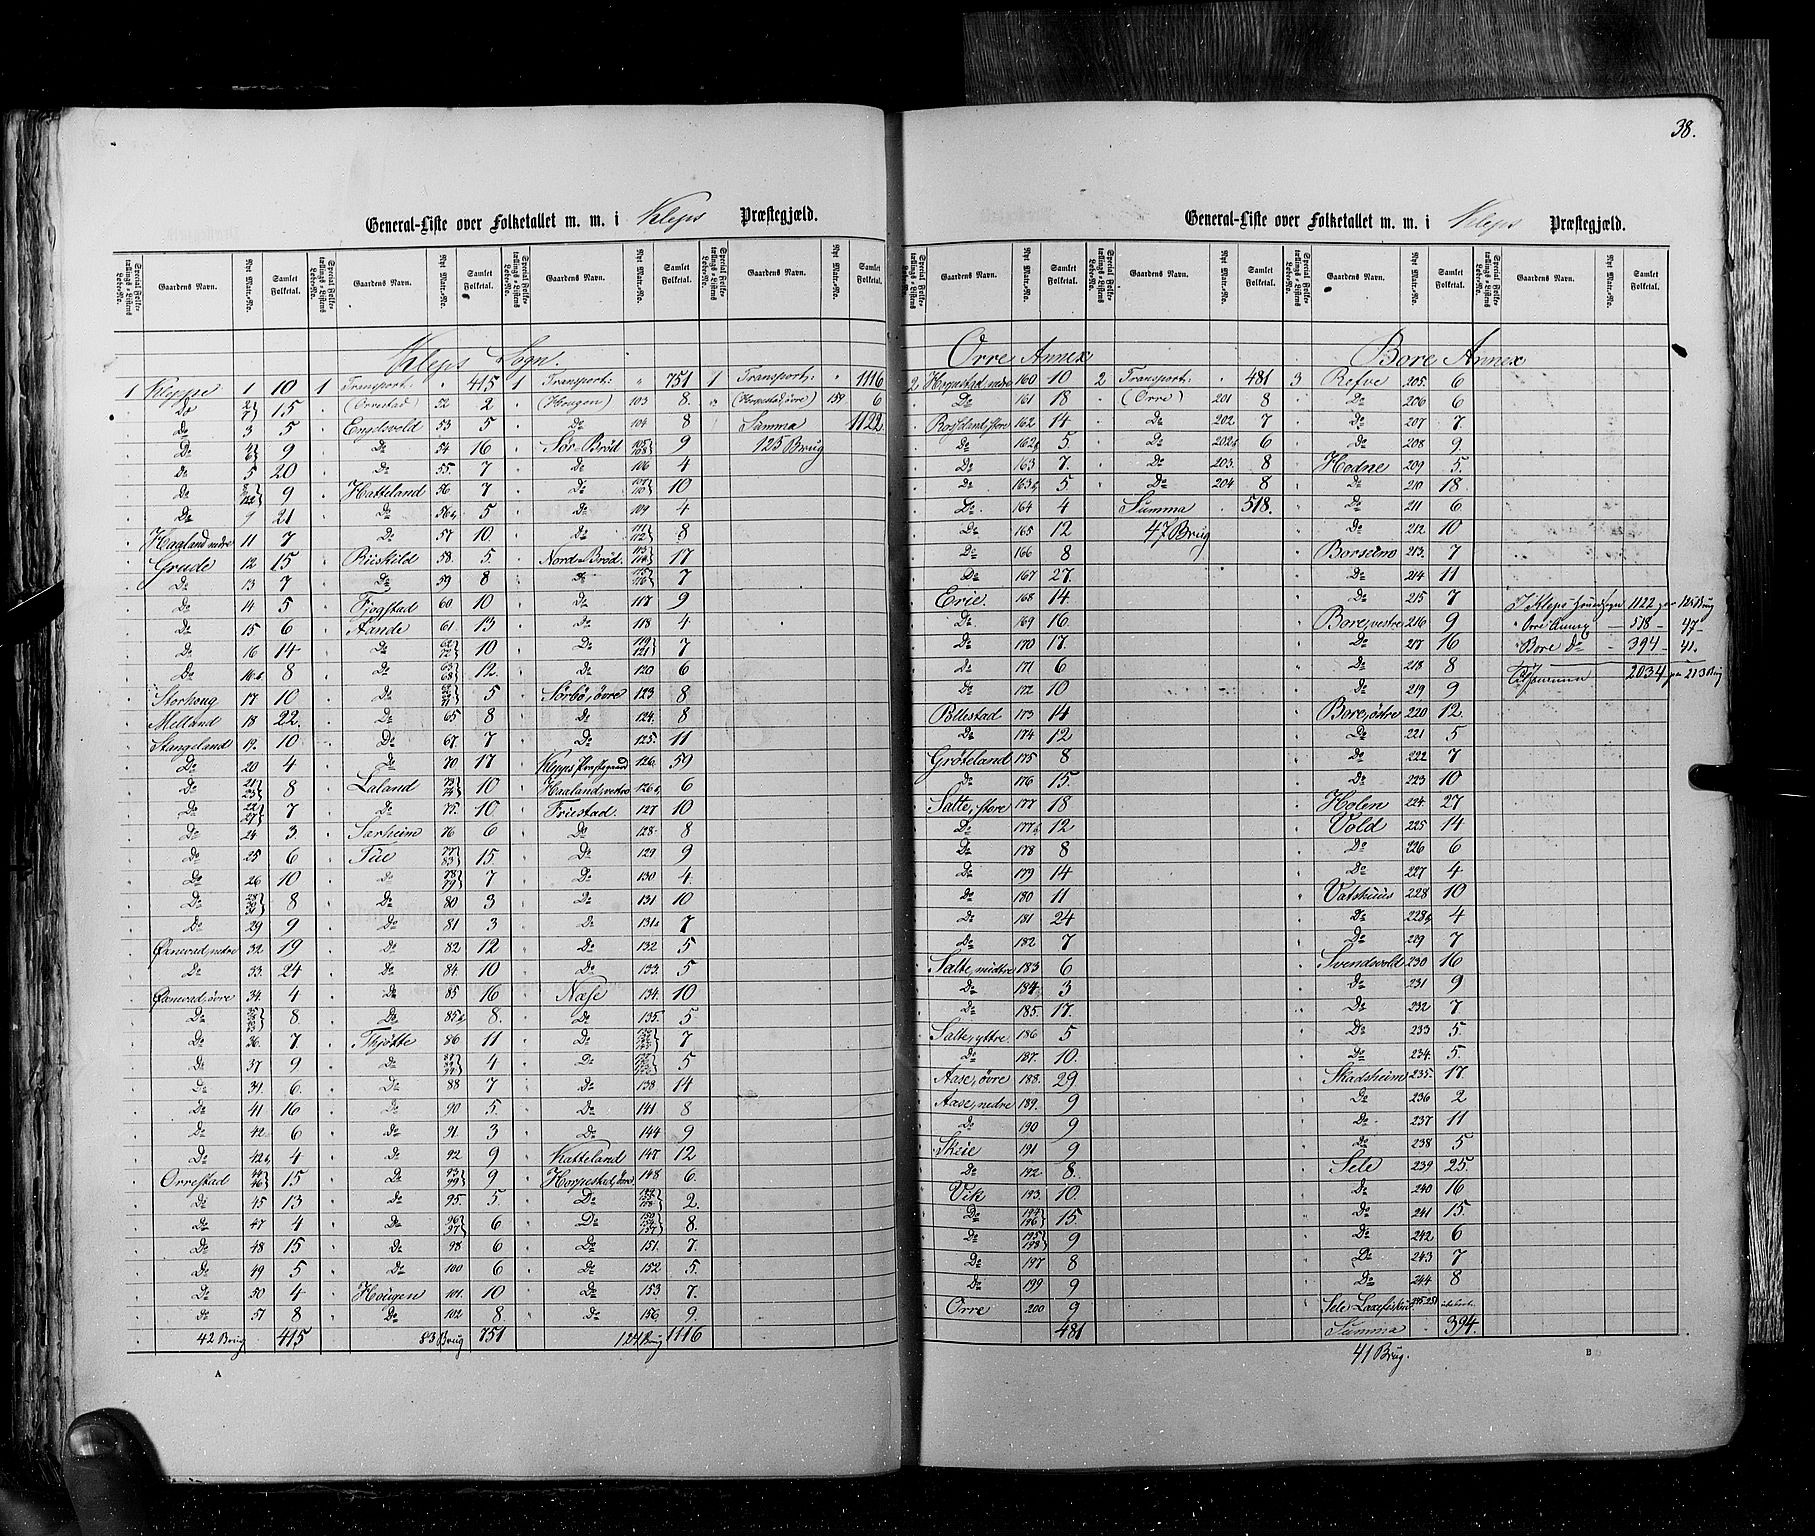 38.
General-Liste over Folketallet m. m. i Kleps Præstegjæld.
Special Folketællings-Listens Løbe-No. Gaardens Navn. Nyt Matr.-No. Samlet Folketal.
Kleps Sogn.
1 Kleppe 1 10
Do 15
Do 3 5
Do 9
Do 5 20
Do 9
Do 9 21
Haaland nedre 11 7
Grude 12 15
Do 13 7
Do 14 5
Do 15 6
Do 16 14
Do 16b 8
Storhoug 17 10
Melland 18 22
Stangeland 19 10
Do 20 4
Do 21 23 8
Do 22 27 7
Do 24 3
Do 25 6
Do 26 10
Do 8
Do 29 9
Øxnevad, nedre 32 19
Do 33 24
Øxnevad, øvre 34 4
Do 8
Do 36 7
Do 37 9
Do 6
Do 41 16
Do 42 6
Do 42b 4
Orrestad 44 46 15
Do 45 13
Do 47 4
Do 48 15
Do 49 5
Do 50 4
Do 51 8
42 Brug 415
1 Transport: " 415
(Orrestad) 52 2
Engelsvold 53 5
Do 54 16
Do 55 7
Hatteland 56 7
Do 56b 5
Do 57 10
Riiskild 58 5
Do 59 8
Fjogstad 60 10
Aande 61 13
Do 62 72 10
Do 63 68 12
Do 5
Do 65 8
Do 67 7
Do 70 17
Laland 73 74 10
Do 75 10
Sarheim 76 6
Tue 77 83 15
Do 78 79 7
Do 80 3
Do 81 3
Do 82 12
Do 84 10
Do 85 16
Do 85b 8
Thjøtte 86 11
Do 4
Do 88 7
Do 90 5
Do 91 3
Do 92 9
Do 93 99 9
Do 95 5
Do 96 97 6
Do 98 6
Do 100 6
Hougen 101 10
Do 102 8
83 Brug 751
1 Transport: " 751
(Hougen) 103 8
Do 104 8
Sør-Brød 105 108 9
Do 106 4
Do 107 110 10
Do 109 4
Do 111 112 8
Nord-Brød 113 114 17
Do 115 116 7
Do 117 9
Do 118 4
Do 119 121 7
Do 120 6
Sørbø, øvre 123 8
Do 124 8
Do 125 11
Klepps Præstegaard 126 59
Haaland, vestre 126b 6
Friestad 127 10
Do 128 8
Do 129 9
Do 130 4
Do 131 10
Do 131b 7
Do 132 5
Do 133 5
Næse 134 10
Do 135 5
Do 7
Do 5
Do 138 14
Do 141 8
Do 144 9
Katteland 147 12
Horpestad, øvre 148 6
Do 2
Do 8
Do 151 7
Do 152 5
Do 153 7
Do 156 9
124 Brug 1116
1 Transport: " 1116
(Horpestad, øvre) 159 6
Summa 1122
125 Brug
A
General-Liste over Folketallet m. m. i Kleps Præstegjæld.
Special Folketællings-Listens Løbe-No. Gaardens Navn. Nyt Matr.-No. Samlet Folketal.
Orre Annex
2 Horpestad, nedre 160 10
Do 161 18
Rosjdland, store 162 14
Do 162b 5
Do 163 7
Do 163b 5
Do 164 4
Do 165 12
Do 166 8
Do 167 27
Erie 168 14
Do 169 16
Do 170 17
Do 171 6
Do 172 10
Pollestad 173 14
Do 174 12
Grøteland 175 8
Do 176 15
Salte, store 177 18
Do 177b 12
Do 178 8
Do 179 14
Do 180 11
Do 181 24
Do 182 7
Salte, midtre 183 6
Do 184 3
Do 185 17
Salte, yttre 186 5
Do 187 10
Aase, øvre 188 29
Aase, nedre 189 9
Do 190 9
Skeie 191 9
Do 192 8
Vik 193 10
Do 194 196 15
Do 195 198 9
Do 197 8
Do 199 9
Orre 200 9
481
2 Transport: " 481
(Orre) 201 8
Do 202 7
Do 202b 6
Do 203 8
Do 204 8
Summa 518
47 Brug
Bore Annex
3 Refve 205 6
Do 206 6
Do 207 7
Do 208 9
Hodne 209 5
Do 210 18
Do 211 6
Do 212 10
Borsemo 213 7
Do 214 11
Do 215 7
Bore, vestre 216 9
Do 217 16
Do 218 8
Do 219 9
Bore, østre 220 12
Do 221 5
Do 222 7
Do 223 10
Holen 224 27
Vold 225 14
Do 226 6
Do 227 4
Vatshuus 228 10
Do 228b 4
Do 229 7
Svendsvold 230 16
Do 231 9
Do 232 7
Do 233 5
Do 234 5
Skadsheim 235 17
Do 236 2
Do 237 11
Do 238 5
Sele 239 25
Do 240 16
Do 241 15
Do 242 6
Do 243 7
Do 244 8
Sele Laxefiskeri 245-251
Summa 394
41 Brug.
I Kleps Hovedsogn 1122 paa 125 Brug
" Orre Annex — 518 — 47 —
" Bore Do — 394 — 41.
Tilsammen 2034 paa 213 Brug
B